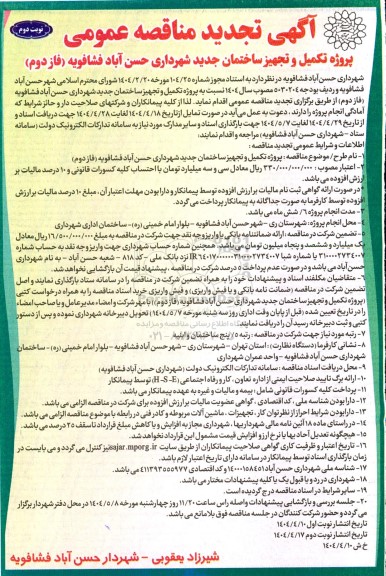 نوبت دوم
آگهی تجدید مناقصه عمومی
پروژه تکمیل و تجهیز ساختمان جدید شهرداری حسن آباد فشافویه (فاز دوم)
شهرداری حسن آباد فشافویه در نظر دارد به استناد مجوز شماره ۱۰۴/۲۵ مورخه ۱۴۰۴/۲/۲۰ شورای محترم اسلامی شهر حسن آباد
فشافویه و ردیف بودجه ۵۰۳۰۲۰۴ مصوب سال ۱۴۰۴ نسبت به پروژه تکمیل و تجهیز ساختمان جدید شهرداری حسن آباد فشافویه
(فاز دوم) از طریق برگزاری تجدید مناقصه عمومی اقدام نماید. لذا از کلیه پیمانکاران و شرکتهای صلاحیت دار و حائز شرایط که
آمادگی انجام پروژه را دارند، دعوت به عمل می آید در صورت تمایل از تاریخ ۱۴۰۴/۴/۱۸ لغایت ۱۴۰۴/۴/۲۸ جهت دریافت اسناد و
از تاریخ ۱۴۰۴/۴/۲۹ لغایت ۱۴۰۴/۵/۷ جهت بارگذاری اسناد و سایر مدارک مورد نیاز به سامانه تدارکات الکترونیک دولت (سامانه
ستاد - شهرداری حسن آباد فشافویه) مراجعه و اقدام نمایند:
اطلاعات و شرایط عمومی تجدید مناقصه:
۱- نام طرح/ موضوع مناقصه: پروژه تکمیل و تجهیز ساختمان جدید شهرداری حسن آباد فشافویه (فاز دوم)
۲- اعتبار مصوب: ۳۳۰/۰۰۰/۰۰۰/۰۰۰ ریال معادل سی و سه میلیارد تومان با احتساب کلیه کسورات قانونی و ۱۰ درصد مالیات بر
ارزش افزوده می باشد.
* در صورت ارائه گواهی ثبت نام مالیات بر ارزش افزوده توسط پیمانکار و دارا بودن مهلت اعتبار آن، مبلغ ۱۰ درصد مالیات بر ارزش
افزوده توسط کارفرما به صورت جداگانه به پیمانکار پرداخت می گردد.
۳- مدت انجام پروژه ۶ / شش ماه می باشد.
۴- محل انجام پروژه: شهرستان ری - شهر حسن آباد فشافویه - بلوار امام خمینی (ره) - ساختمان اداری شهرداری
۵- تضمین شرکت در مناقصه: ارائه ضمانتنامه بانکی یا واریز وجه نقد جهت شرکت در مناقصه به مبلغ ۱۶/۵۰۰/۰۰۰/۰۰۰ ریال معادل
یک میلیارد و ششصد و پنجاه میلیون تومان می باشد. همچنین شماره حساب شهرداری جهت واریز وجه نقد به حساب شماره
حسن آباد می باشد و در صورت عدم پرداخت ۵ درصد شرکت در مناقصه، پیشنهاد قیمت آن بازگشایی نخواهد شد.
۶- متقاضیان مکلفند اسناد و پیشنهادات خود را به همراه تضمین شرکت در مناقصه را در سامانه ستاد بارگذاری نمایند و اصل
تضمین شرکت در مناقصه (ضمانت نامه بانکی و یا فیش واریزی) و فیش واریزی خرید اسناد مناقصه را به همراه درخواست کتبی
(پروژه تکمیل و تجهیز ساختمان جدید شهرداری حسن آباد فشافویه (فاز دوم)) با مهر شرکت و امضاء مدیرعامل و یا صاحب امضاء
را در تاریخ تعیین شده (قبل از پایان وقت اداری روز سه شنبه مورخه ۱۴۰۴/۵/۷) تحویل دبیرخانه شهرداری نموده و پس از دستور
کتبی و ثبت دبیرخانه رسید آن را دریافت نمایند.
۷- رتبه مورد نیاز جهت شرکت در مناقصه: رتبه ۵ / پنج ساختمان و ابنیه
۸- نشانی کارفرما (دستگاه نظارت): استان تهران - شهرستان ری - شهر حسن آباد فشافویه - بلوار امام خمینی (ره) - ساختمان
شهرداری حسن آباد فشافویه - واحد عمران شهرداری
۹- محل دریافت اسناد مناقصه: سامانه تدارکات الکترونیک دولت (شهرداری حسن آباد فشافویه)
۱۰- ارائه برگ تایید صلاحیت ایمنی از اداره تعاون، کار و رفاه اجتماعی (H-S-E) توسط پیمانکار
۱۱- پرداخت کلیه کسورات قانونی شامل: بیمه و مالیات و غیره به عهده پیمانکار می باشد.
۱۲- دارا بودن شناسه ملی، کد اقتصادی، گواهی عضویت مالیات بر ارزش افزوده برای شرکت در مناقصه الزامی می باشد.
۱۳- دارا بودن شرایط احراز از نظر توان کار، تجهیزات، ماشین آلات مربوطه و کادر فنی در رابطه با موضوع مناقصه الزامی می باشد.
۱۴- در راستای ماده ۱۸ آئین نامه مالی شهرداریها، شهرداری مجاز به افزایش و یا کاهش مبلغ قرارداد تا سقف ۲۵ درصد می باشد.
۱۵- هیچگونه تعدیل آحاد بها یا نرخ ارز و افزایش قیمت مشمول این قرارداد نخواهد شد.
۱۶- تاریخ اعتبار و ظرفیت کاری گواهی صلاحیت پیمانکاران از طریق سایت sajar.mporg.ir نیز کنترل می گردد و می بایست در
زمان بارگذاری اسناد توسط پیمانکار در سامانه دارای تاریخ اعتبار لازم باشد.
۱۸- شهرداری در رد یا قبول یک یا کلیه پیشنهادات مختار می باشد.
۱۹- سایر شرایط در اسناد مناقصه درج گردیده است.
۲۰- جلسه بررسی و بازگشایی پیشنهادات واصله راس ساعت ۱۱/۲۰ روز چهارشنبه مورخه ۱۴۰۴/۵/۸ در محل دفتر شهردار برگزار
می گردد و حضور شرکت کنندگان در جلسه مناقصه فوق بلامانع می باشد.
تاریخ انتشار نوبت اول: ۱۴۰۴/۴/۱۰
تاریخ انتشار نوبت دوم: ۱۴۰۴/۴/۱۷
خ ش ۱۴۰۴/۴/۱۰
شیرزاد یعقوبی - شهردار حسن آباد فشافویه